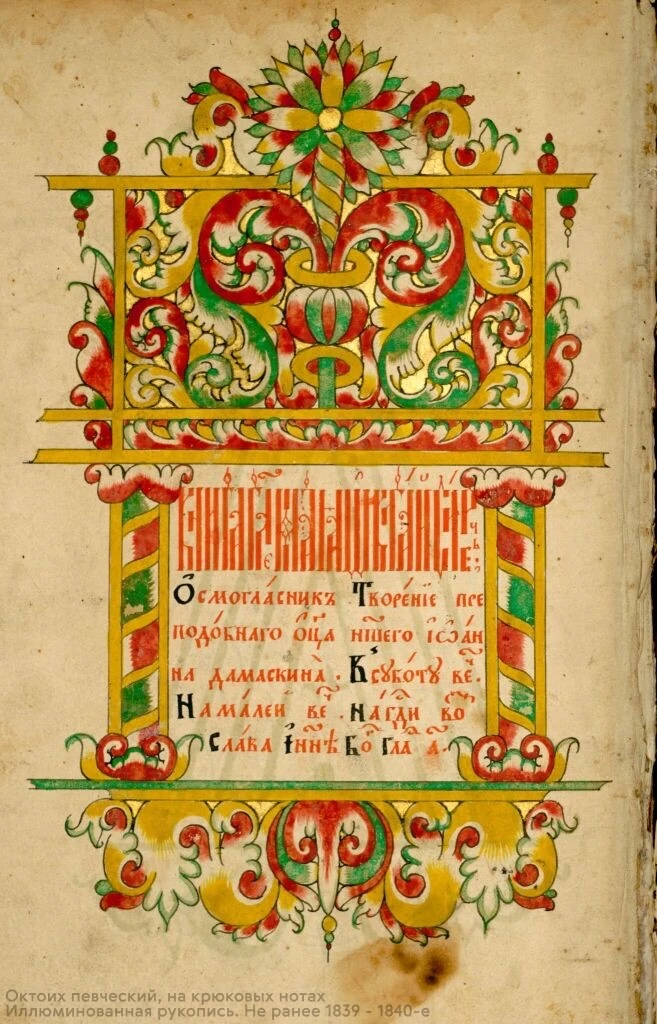 КНИГА
Ѻ҆смогла́сникъ Творе́нїе пре
подо́бнаго ѻ҆ц҃а нш҃его і҆ѡа́н
на дамаскина̀. В субо́ту ве҃.
На ма́леи ве҃. На́ гд҃и во҃
Сла́ва і҆ нн҃ѣ Бо҃ Гла а҃.
Октоих певческий, на крюковых нотах
Иллюминованная рукопись. Не ранее 1839 - 1840-е